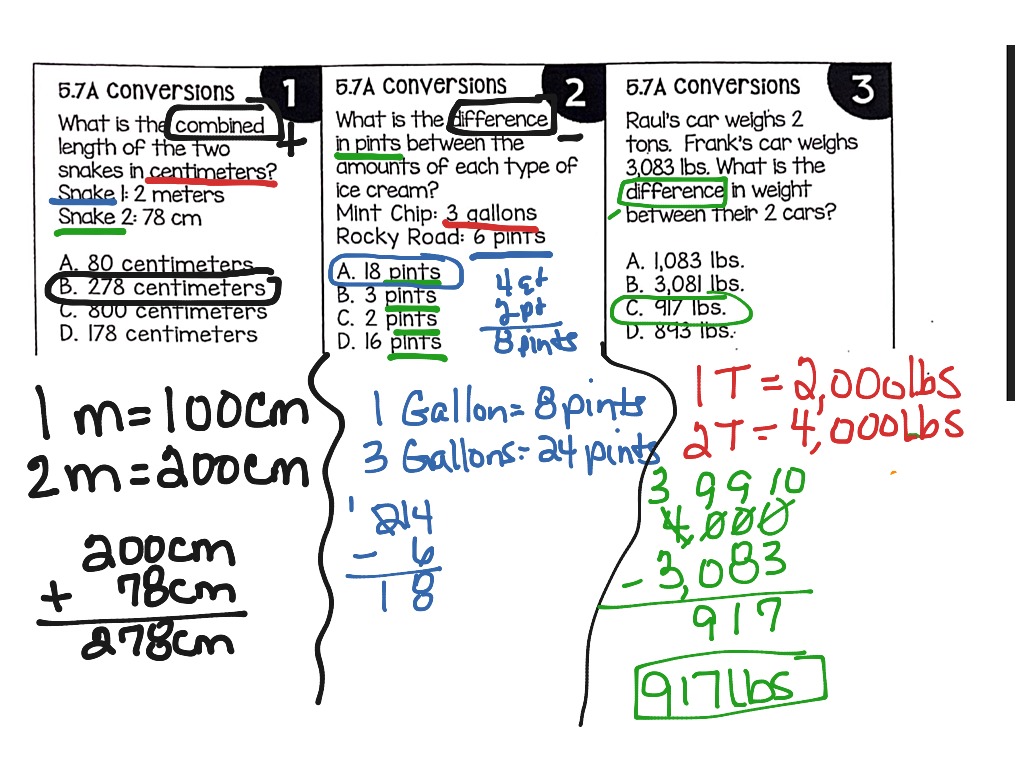 5.7A Conversions 1
What is the combined +
length of the two
snakes in centimeters?
Snake 1: 2 meters
Snake 2: 78 cm
A. 80 centimeters
B. 278 centimeters
C. 800 centimeters
D. 178 centimeters
1 m = 100cm
2 m = 200cm
200cm
+ 78cm
278cm
5.7A Conversions 2
What is the difference -
in pints between the
amounts of each type of
ice cream?
Mint Chip: 3 gallons
Rocky Road: 6 pints
A. 18 pints
B. 3 pints
C. 2 pints
D. 16 pints
4 qt
2 pt
8 pints
1 Gallon = 8 pints
3 Gallons = 24 pints
1 214
- 6
18
5.7A Conversions 3
Raul's car weighs 2
tons. Frank's car weighs
3,083 lbs. What is the
difference in weight
between their 2 cars?
A. 1,083 lbs.
B. 3,081 lbs.
C. 917 lbs.
D. 893 lbs.
1 T = 2,000lbs
2T = 4,000lbs
3 9 9 10
4,000
- 3,083
917
917lbs